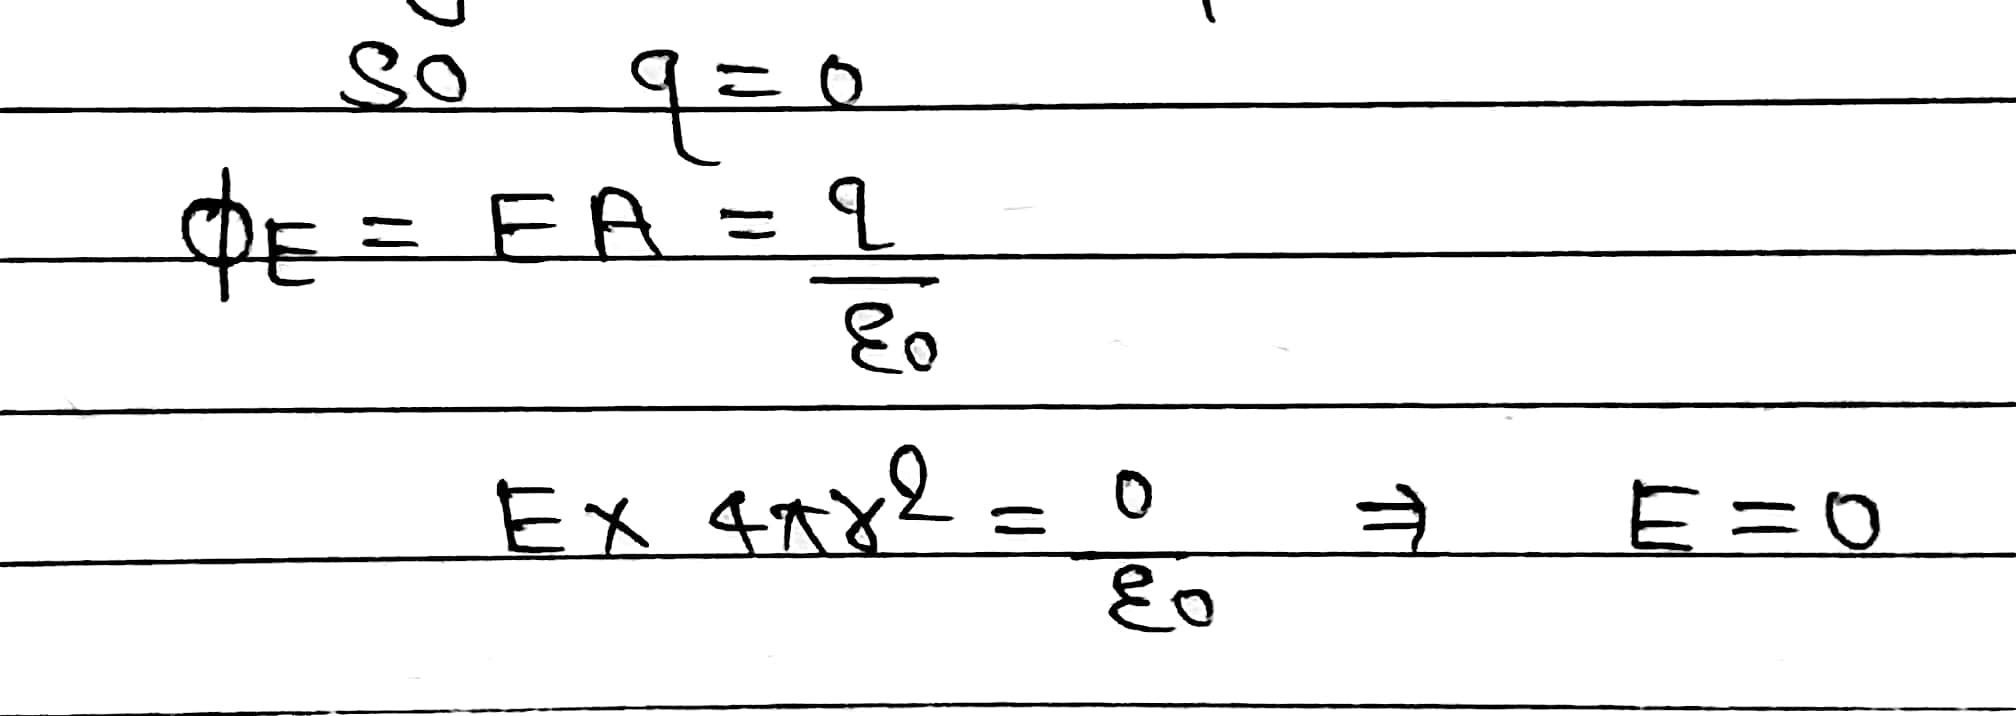 so q = 0
ΦE = EA = q/ε0
E × 4πr² = 0/ε0 ⇒ E = 0